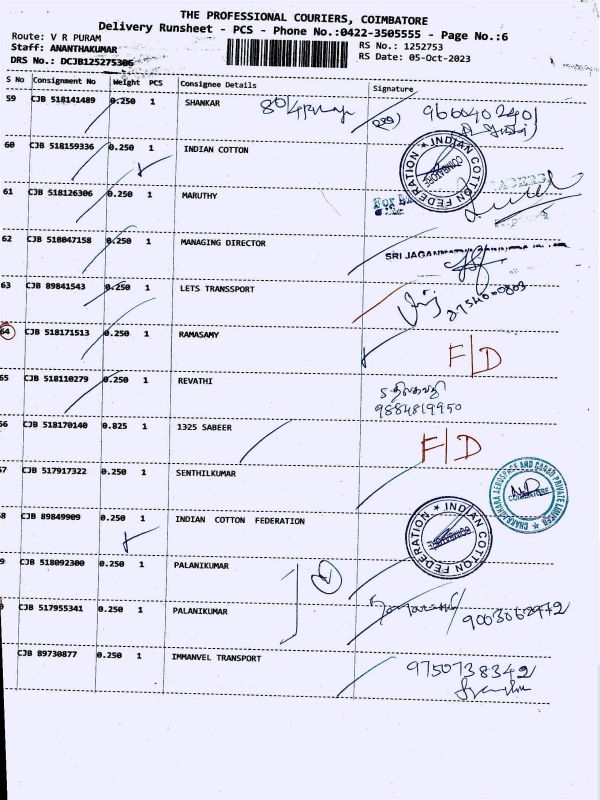 THE PROFESSIONAL COURIERS, COIMBATORE
Delivery Runsheet - PCS - Phone No.:0422-3505555 - Page No.:6
Route: V R PURAM
RS No.: 1252753
Staff: ANANTHAKUMAR
RS Date: 05-Oct-2023
DRS No.: DCJB125275306
S No Consignment No Weight PCS Consignee Details Signature
59 CJB 518141489 0.250 1 SHANKAR 9660402401
60 CJB 518159336 0.250 1 INDIAN COTTON
INDIAN COTTON FEDERATION
COIMBATORE
61 CJB 518126306 0.250 1 MARUTHY
For
62 CJB 518047158 0.250 1 MANAGING DIRECTOR
SRI JAGANNATHA
63 CJB 89841543 0.250 1 LETS TRANSSPORT
8754000803
64 CJB 518171513 0.250 1 RAMASAMY F/D
65 CJB 518110279 0.250 1 REVATHI
9884819950
66 CJB 518170140 0.825 1 1325 SABEER F/D
67 CJB 517917322 0.250 1 SENTHILKUMAR
CHAKRADHARA AEROSPACE AND CARGO PRIVATE LIMITED
COIMBATORE
8 CJB 89849909 0.250 1 INDIAN COTTON FEDERATION
INDIAN COTTON FEDERATION
COIMBATORE
9 CJB 518092300 0.250 1 PALANIKUMAR 2
CJB 517955341 0.250 1 PALANIKUMAR 9003062972
CJB 89730877 0.250 1 IMMANVEL TRANSPORT 9750738342